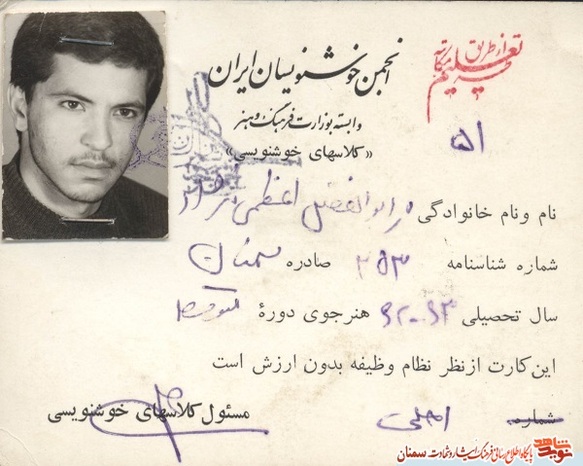 از طریق
تعلیم
مکاتبه
انجمن خوشنویسان ایران
وابسته بوزارت فرهنگ و هنر
«کلاسهای خوشنویسی»
۵۱
نام و نام خانوادگی ابوالفضل اعظمی نژاد
شماره شناسنامه ۲۵۳ صادره سمنان
سال تحصیلی ۶۳-۶۲ هنرجوی دورهٔ متوسط
این کارت از نظر نظام وظیفه بدون ارزش است
شماره
مسئول کلاسهای خوشنویسی
نوید شاهد
پایگاه اطلاع رسانی فرهنگ ایثار و شهادت سمنان